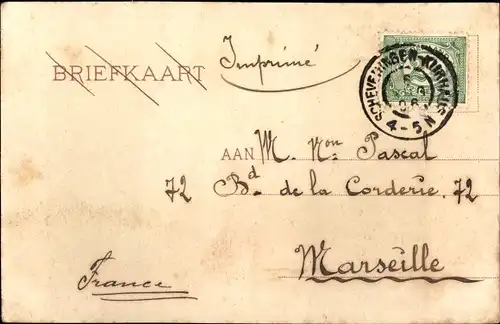 BRIEFKAART
Imprimé
SCHEVENINGEN-KURHAUS
4-5.N
AAN M. Non Pascal
72 Bd. de la Corderie. 72
Marseille
France